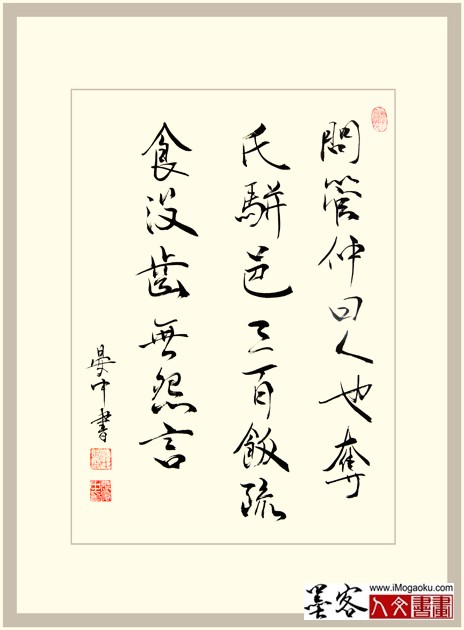 問管仲曰人也奪
氏駢邑三百飯疏
食没齒無怨言
晏中書
www.iMogaoku.com
墨客人文書畫